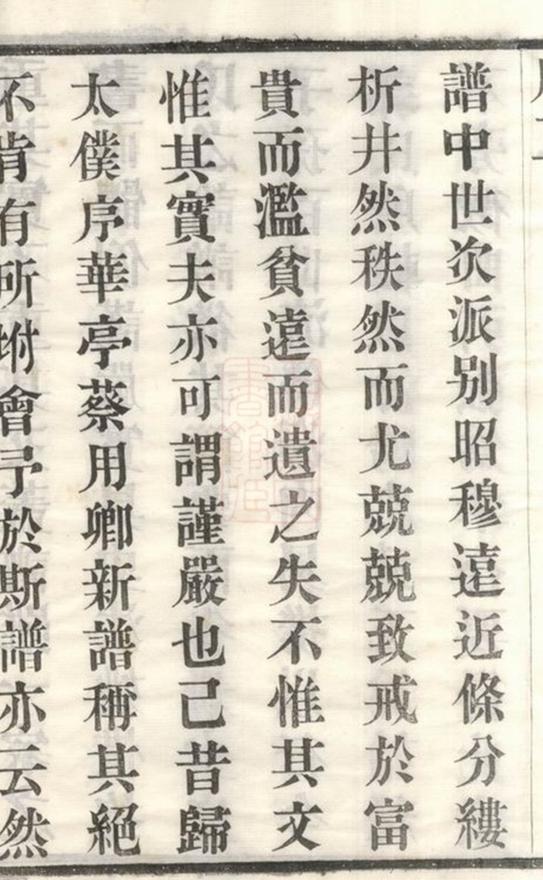 譜中世次派别昭穆遠近條分縷
析井然秩然而尤兢兢致戒於富
貴而濫貧遠而遺之失不惟其文
惟其實夫亦可謂謹嚴也己昔歸
太僕序華亭蔡用卿新譜稱其絕
不肯有所坿會予於斯譜亦云然